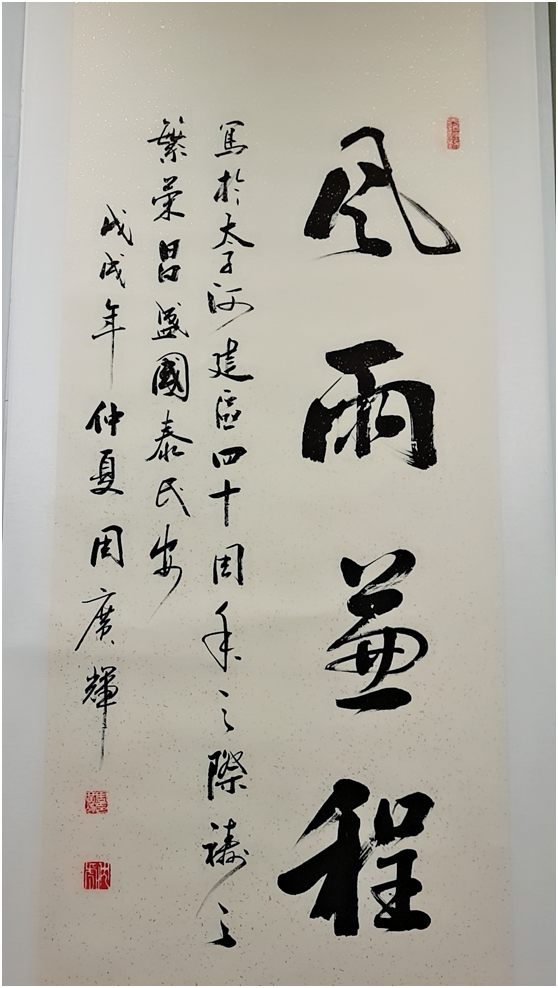 风雨兼程
寫於太子河建區四十周年之際禱之
繁荣昌盛國泰民安
戊戌年仲夏周廣輝